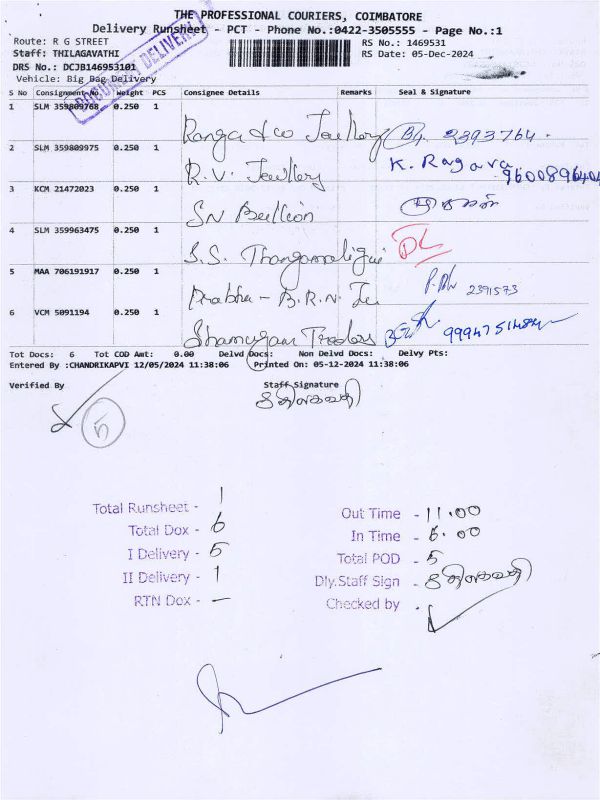 THE PROFESSIONAL COURIERS, COIMBATORE
Delivery Runsheet - PCT - Phone No.:0422-3505555 - Page No.:1
Route: R G STREET
RS No.: 1469531
Staff: THILAGAVATHI
RS Date: 05-Dec-2024
DRS No.: DCJB146953101
Vehicle: Big Bag Delivery
DOCUMENT DELIVERY
S No Consignment No Weight PCS Consignee Details Remarks Seal & Signature
1 SLM 359809768 0.250 1
Ranga & co Jewllery 2393764.
2 SLM 359809975 0.250 1
R.V. Jewllery K. Ragava
3 KCM 21472023 0.250 1
SN Bullion
4 SLM 359963475 0.250 1
S.S. Thangamaligai
5 MAA 706191917 0.250 1
Prabhu - B.R.N. 2391573
6 VCM 5091194 0.250 1
Shanmugam Traders
Tot Docs: 6 Tot COD Amt: 0.00 Delvd Docs: Non Delvd Docs: Delvy Pts:
Entered By :CHANDRIKAPVI 12/05/2024 11:38:06 Printed On: 05-12-2024 11:38:06
Verified By Staff Signature
திலகவதி
5
Total Runsheet - 1
Total Dox - 6
I Delivery - 5
II Delivery - 1
RTN Dox - —
Out Time - 11.00
In Time - 6.00
Total POD - 5
Dly.Staff Sign - திலகவதி
Checked by -